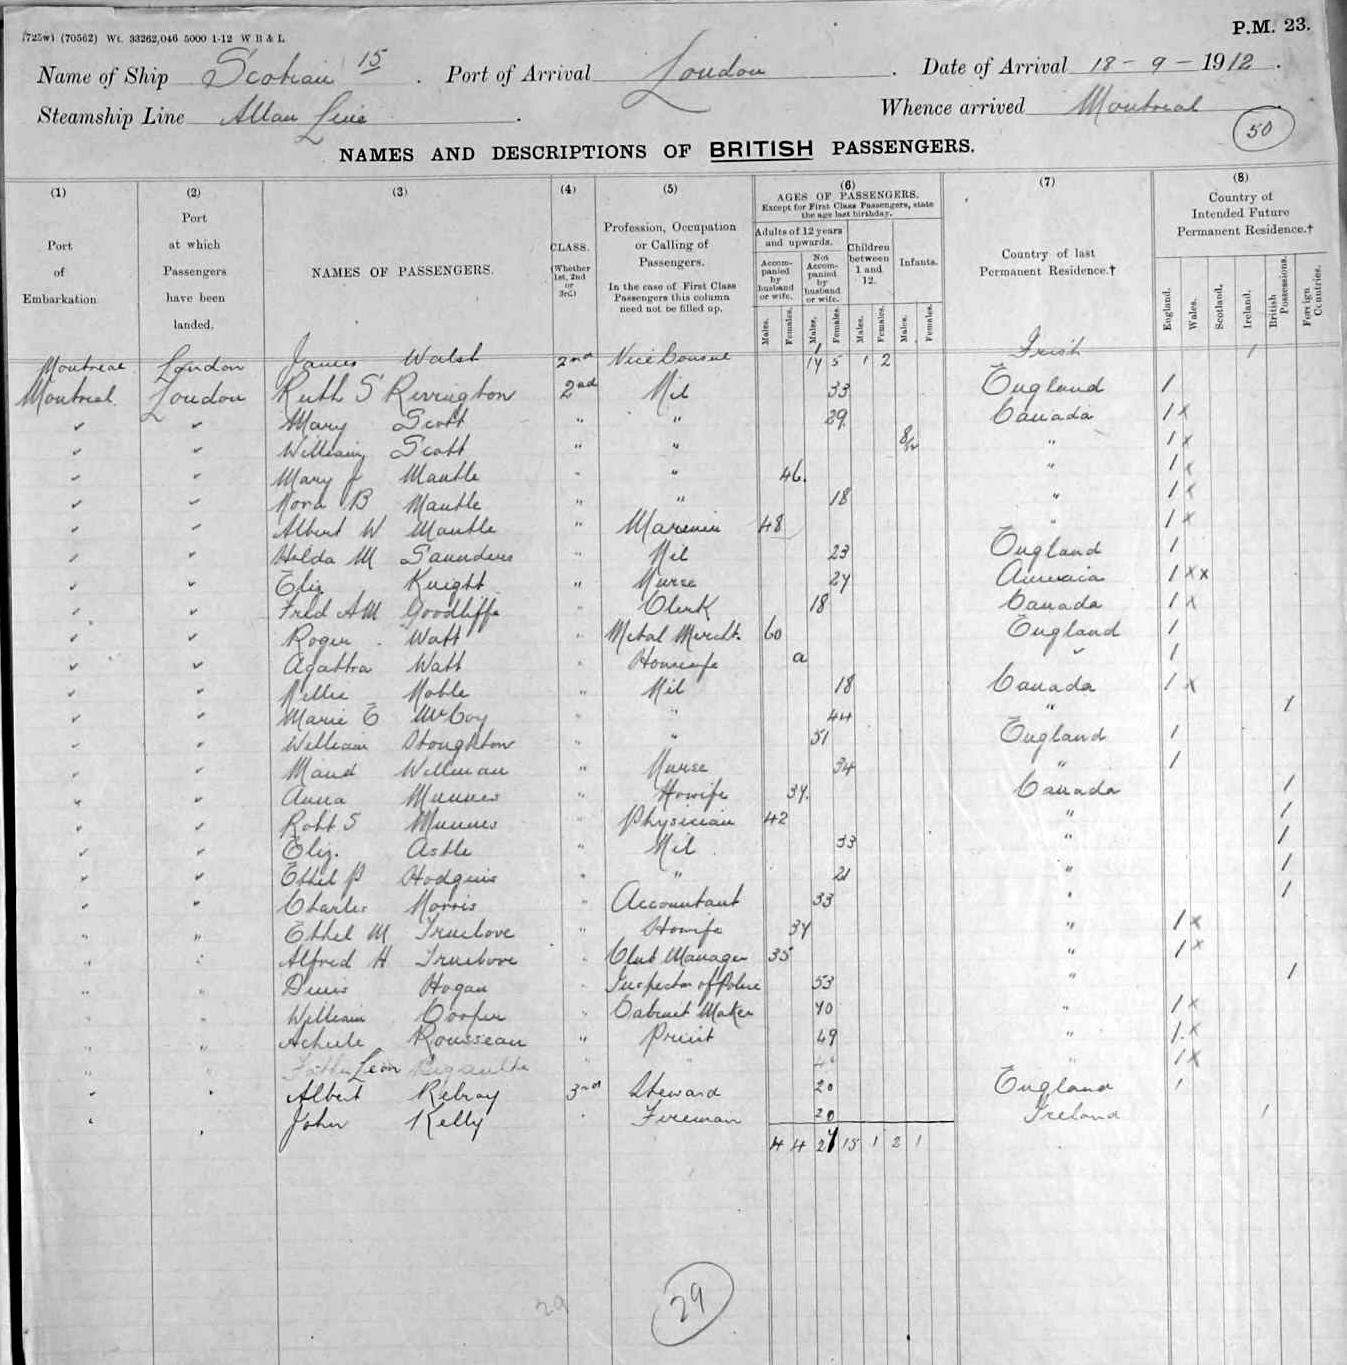 (725w) (70562) Wt. 33262,046 5000 1-12 W B & L
P.M. 23.
Name of Ship Scotian 15. Port of Arrival London. Date of Arrival 18-9-1912.
Steamship Line Allan Line. Whence arrived Montreal
50
NAMES AND DESCRIPTIONS OF BRITISH PASSENGERS.
(1) Port of Embarkation
(2) Port at which Passengers have been landed.
(3) NAMES OF PASSENGERS.
(4) CLASS. (Whether 1st, 2nd or 3rd.)
(5) Profession, Occupation or Calling of Passengers. In the case of First Class Passengers this column need not be filled up.
(6) AGES OF PASSENGERS. Except for First Class Passengers, state the age last birthday.
Adults of 12 years and upwards. Children between 1 and 12. Infants.
Accompanied by husband or wife. Not Accompanied by husband or wife.
Males. Females. Males. Females. Males. Females. Males. Females.
(7) Country of last Permanent Residence.†
(8) Country of Intended Future Permanent Residence.†
England. Wales. Scotland. Ireland. British Possessions. Foreign Countries.
Montreal London James Walsh 2nd Vice Consul 5 1 2 Irish 1
Montreal London Ruth S Rivington 2nd Nil 33 England 1
" " Mary Scott " " 29 Canada 1 x
" " William Scott " " " 1 x
" " Mary J Mantle " " 46 " 1 x
" " Nora B Mantle " " 18 " 1 x
" " Albert W Mantle " 48 " 1 x
" " Hilda M Saunders " Nil 23 England 1
" " Eliz Knight " Nurse 27 America 1 x x
" " Fred AM Goodliffe " Clerk 18 Canada 1 x
" " Roger Watt " Metal Mercht. 60 England 1
" " Agattra Watt " Housewife a " 1
" " Nellie Noble " Nil 18 Canada 1 x
" " Marie E McCoy " " 44 " 1
" " William Stoughton " " 51 England 1
" " Maud Willman " Nurse 34 " 1
" " Anna Munnes " Hswife 37 Canada 1
" " Robt S Munnes " Physician 42 " 1
" " Eliz. Astle " Nil 33 " 1
" " Ethel P Hodgins " " 21 " 1
" " Charles Morris " Accountant 33 " 1
" " Ethel M Truelove " Hswife 34 " 1 x
" " Alfred H Truelove " Club Manager 35 " 1 x
" " Denis Hogan " Inspector of Police 53 " 1
" " William Cooper " Cabinet Maker 40 " 1 x
" " Achille Rousseau " Priest 49 " 1 x
" " Father Léon " " " 1 x
" " Albert Relroy 3rd Steward 20 England 1
" " John Kelly " Fireman 20 Ireland 1
4 4 27 15 1 2 1
29
29